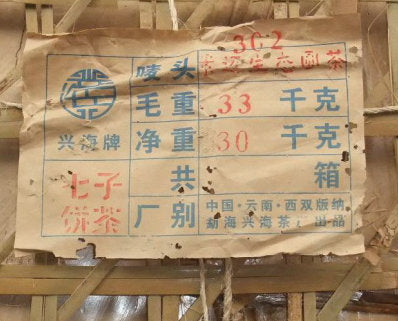 302
唛头 生态圆茶
毛重 33 千克
兴海牌 净重 30 千克
七子饼茶
共 箱
厂别 中国·云南·西双版纳
勐海兴海茶厂出品